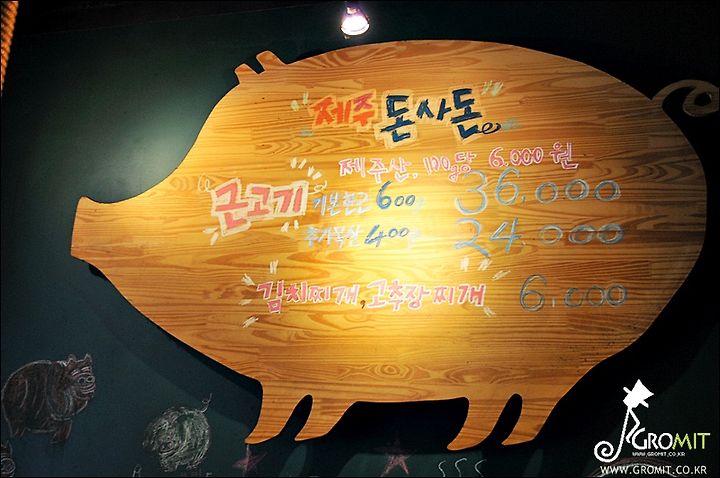 제주 돈사돈
제주산, 100g당 6,000원
근고기 기본한근 600g 36,000
추가목살 400g 24,000
김치찌개, 고추장찌개 6,000
GROMIT
WWW.GROMIT.CO.KR
WWW.GROMIT.CO.KR